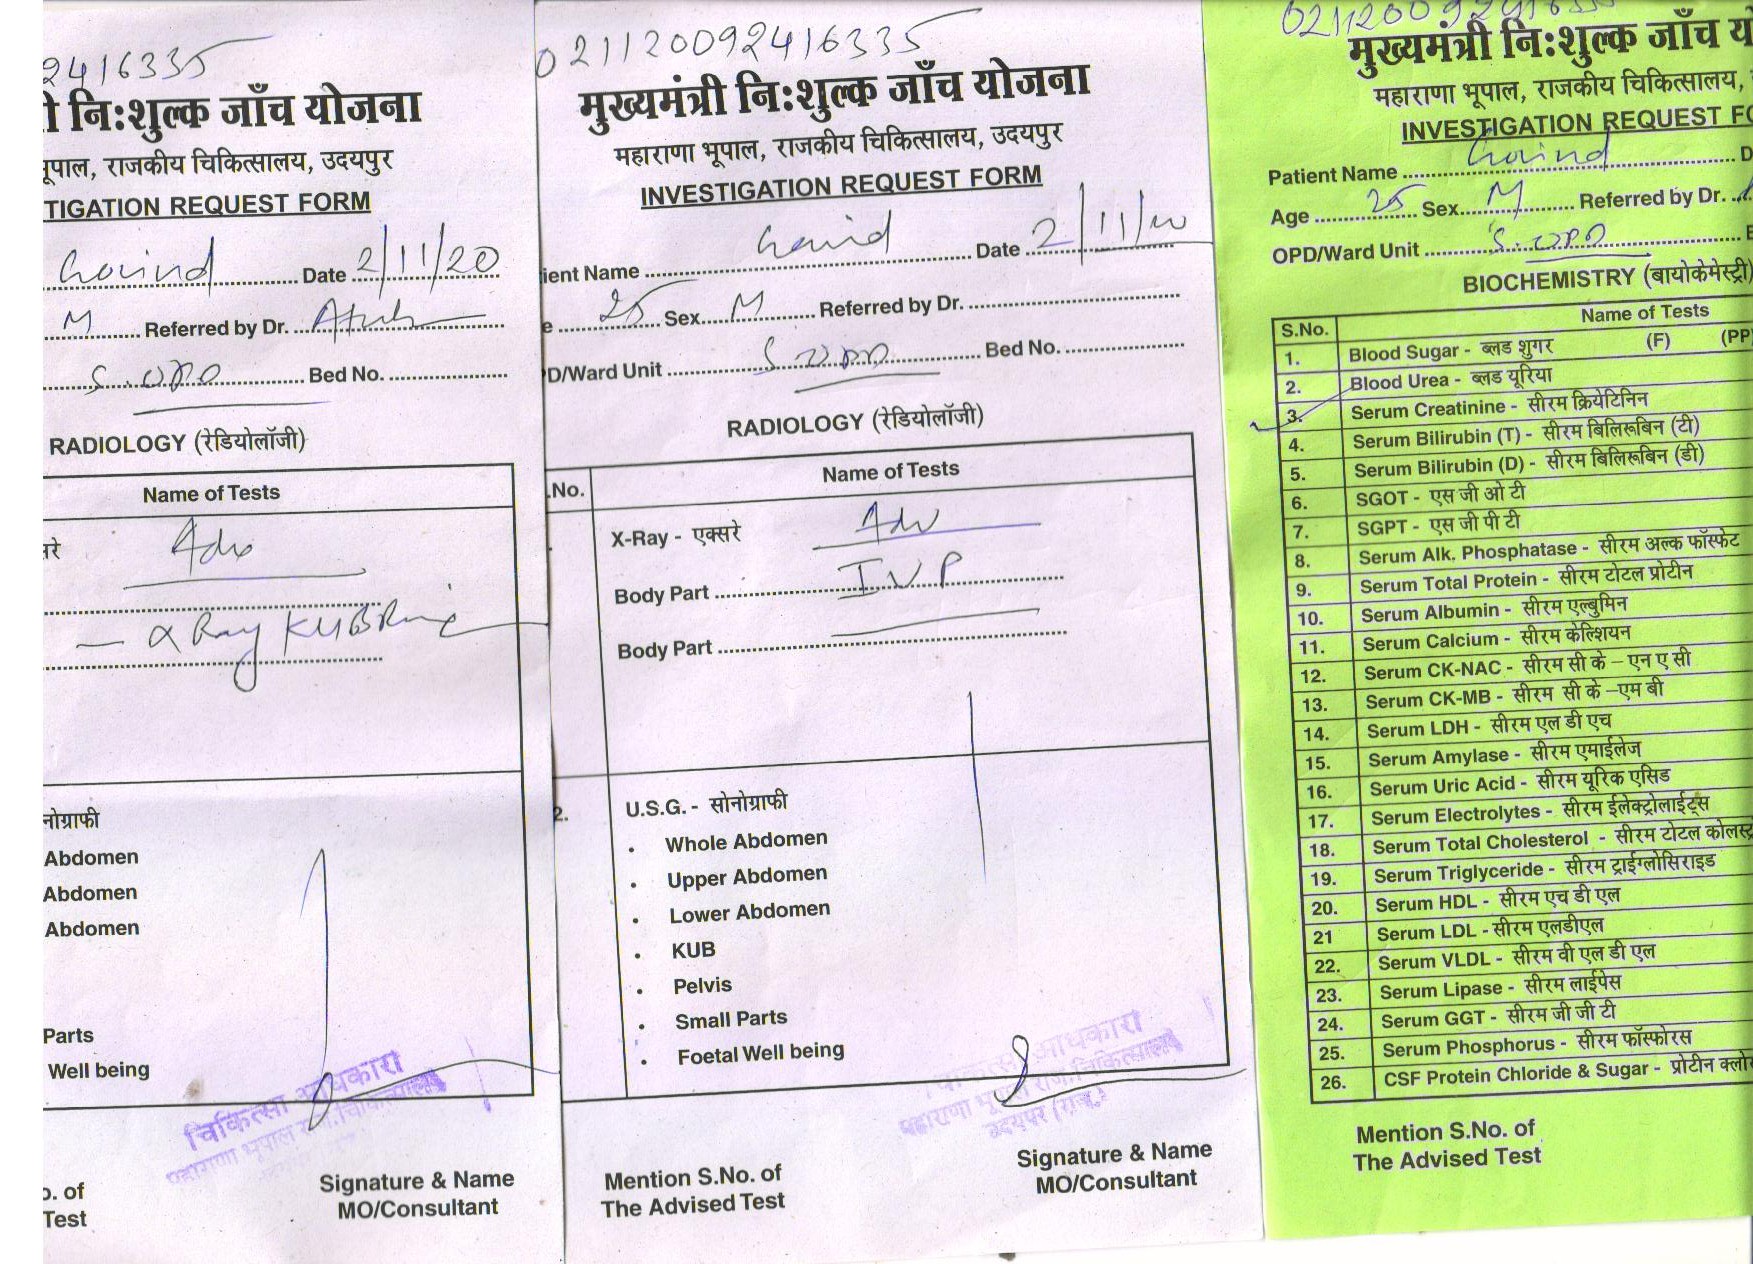 2416335
ी निःशुल्क जाँच योजना
भूपाल, राजकीय चिकित्सालय, उदयपुर
TIGATION REQUEST FORM
Govind Date 2/11/20
M Referred by Dr.
S.OPD Bed No.
RADIOLOGY (रेडियोलॉजी)
Name of Tests
सरे Adv
- X Ray KUB Region
नोग्राफी
Abdomen
Abdomen
Abdomen
Parts
Well being
चिकित्सा अधिकारी
महाराणा भूपाल राज. चिकित्सालय
Signature & Name
MO/Consultant
o. of
Test
021120092416335
मुख्यमंत्री निःशुल्क जाँच योजना
महाराणा भूपाल, राजकीय चिकित्सालय, उदयपुर
INVESTIGATION REQUEST FORM
ient Name Govind Date 2/11/20
e 25 Sex M Referred by Dr.
D/Ward Unit S.OPD Bed No.
RADIOLOGY (रेडियोलॉजी)
.No. Name of Tests
X-Ray - एक्सरे Adv
Body Part IVP
Body Part
2. U.S.G. - सोनोग्राफी
• Whole Abdomen
• Upper Abdomen
• Lower Abdomen
• KUB
• Pelvis
• Small Parts
• Foetal Well being
चिकित्सा अधिकारी
महाराणा भूपाल राज. चिकित्सालय
उदयपुर (राज.)
Mention S.No. of
The Advised Test
Signature & Name
MO/Consultant
021120092416335
मुख्यमंत्री निःशुल्क जाँच य
महाराणा भूपाल, राजकीय चिकित्सालय,
INVESTIGATION REQUEST FO
Patient Name Govind D
Age 25 Sex M Referred by Dr.
OPD/Ward Unit S.OPD
BIOCHEMISTRY (बायोकेमेस्ट्री)
S.No. Name of Tests
1. Blood Sugar - ब्लड शुगर (F) (PP
2. Blood Urea - ब्लड यूरिया
3. Serum Creatinine - सीरम क्रियेटिनिन
4. Serum Bilirubin (T) - सीरम बिलिरूबिन (टी)
5. Serum Bilirubin (D) - सीरम बिलिरूबिन (डी)
6. SGOT - एस जी ओ टी
7. SGPT - एस जी पी टी
8. Serum Alk. Phosphatase - सीरम अल्क फॉस्फेट
9. Serum Total Protein - सीरम टोटल प्रोटीन
10. Serum Albumin - सीरम एल्बुमिन
11. Serum Calcium - सीरम केल्शियन
12. Serum CK-NAC - सीरम सी के – एन ए सी
13. Serum CK-MB - सीरम सी के –एम बी
14. Serum LDH - सीरम एल डी एच
15. Serum Amylase - सीरम एमाईलेज
16. Serum Uric Acid - सीरम यूरिक एसिड
17. Serum Electrolytes - सीरम ईलेक्ट्रोलाईट्स
18. Serum Total Cholesterol - सीरम टोटल कोलस्ट्र
19. Serum Triglyceride - सीरम ट्राईग्लोसिराइड
20. Serum HDL - सीरम एच डी एल
21 Serum LDL - सीरम एलडीएल
22. Serum VLDL - सीरम वी एल डी एल
23. Serum Lipase - सीरम लाईपेस
24. Serum GGT - सीरम जी जी टी
25. Serum Phosphorus - सीरम फॉस्फोरस
26. CSF Protein Chloride & Sugar - प्रोटीन क्लो
Mention S.No. of
The Advised Test